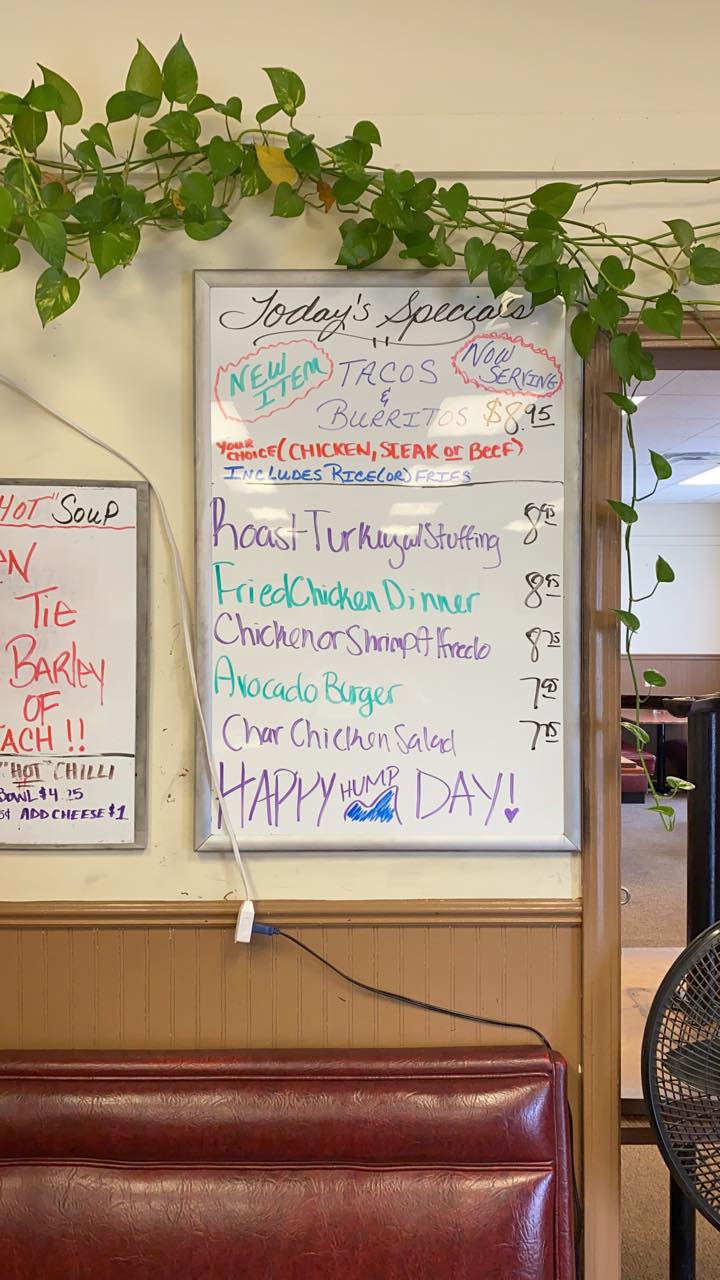 Today's Specials
NEW ITEM
TACOS
&
BURRITOS $8.95
NOW SERVING
YOUR CHOICE (CHICKEN, STEAK or BEEF)
INCLUDES RICE (OR) FRIES
Roast Turkey w/ Stuffing 8.95
Fried Chicken Dinner 8.95
Chicken or Shrimp Alfredo
Avocado Burger
Char Chicken Salad
HAPPY HUMP DAY!
"HOT" SOUP
TIE
BARLEY
OF
ACH!!
"HOT" CHILLI
BOWL $4.25
ADD CHEESE $1